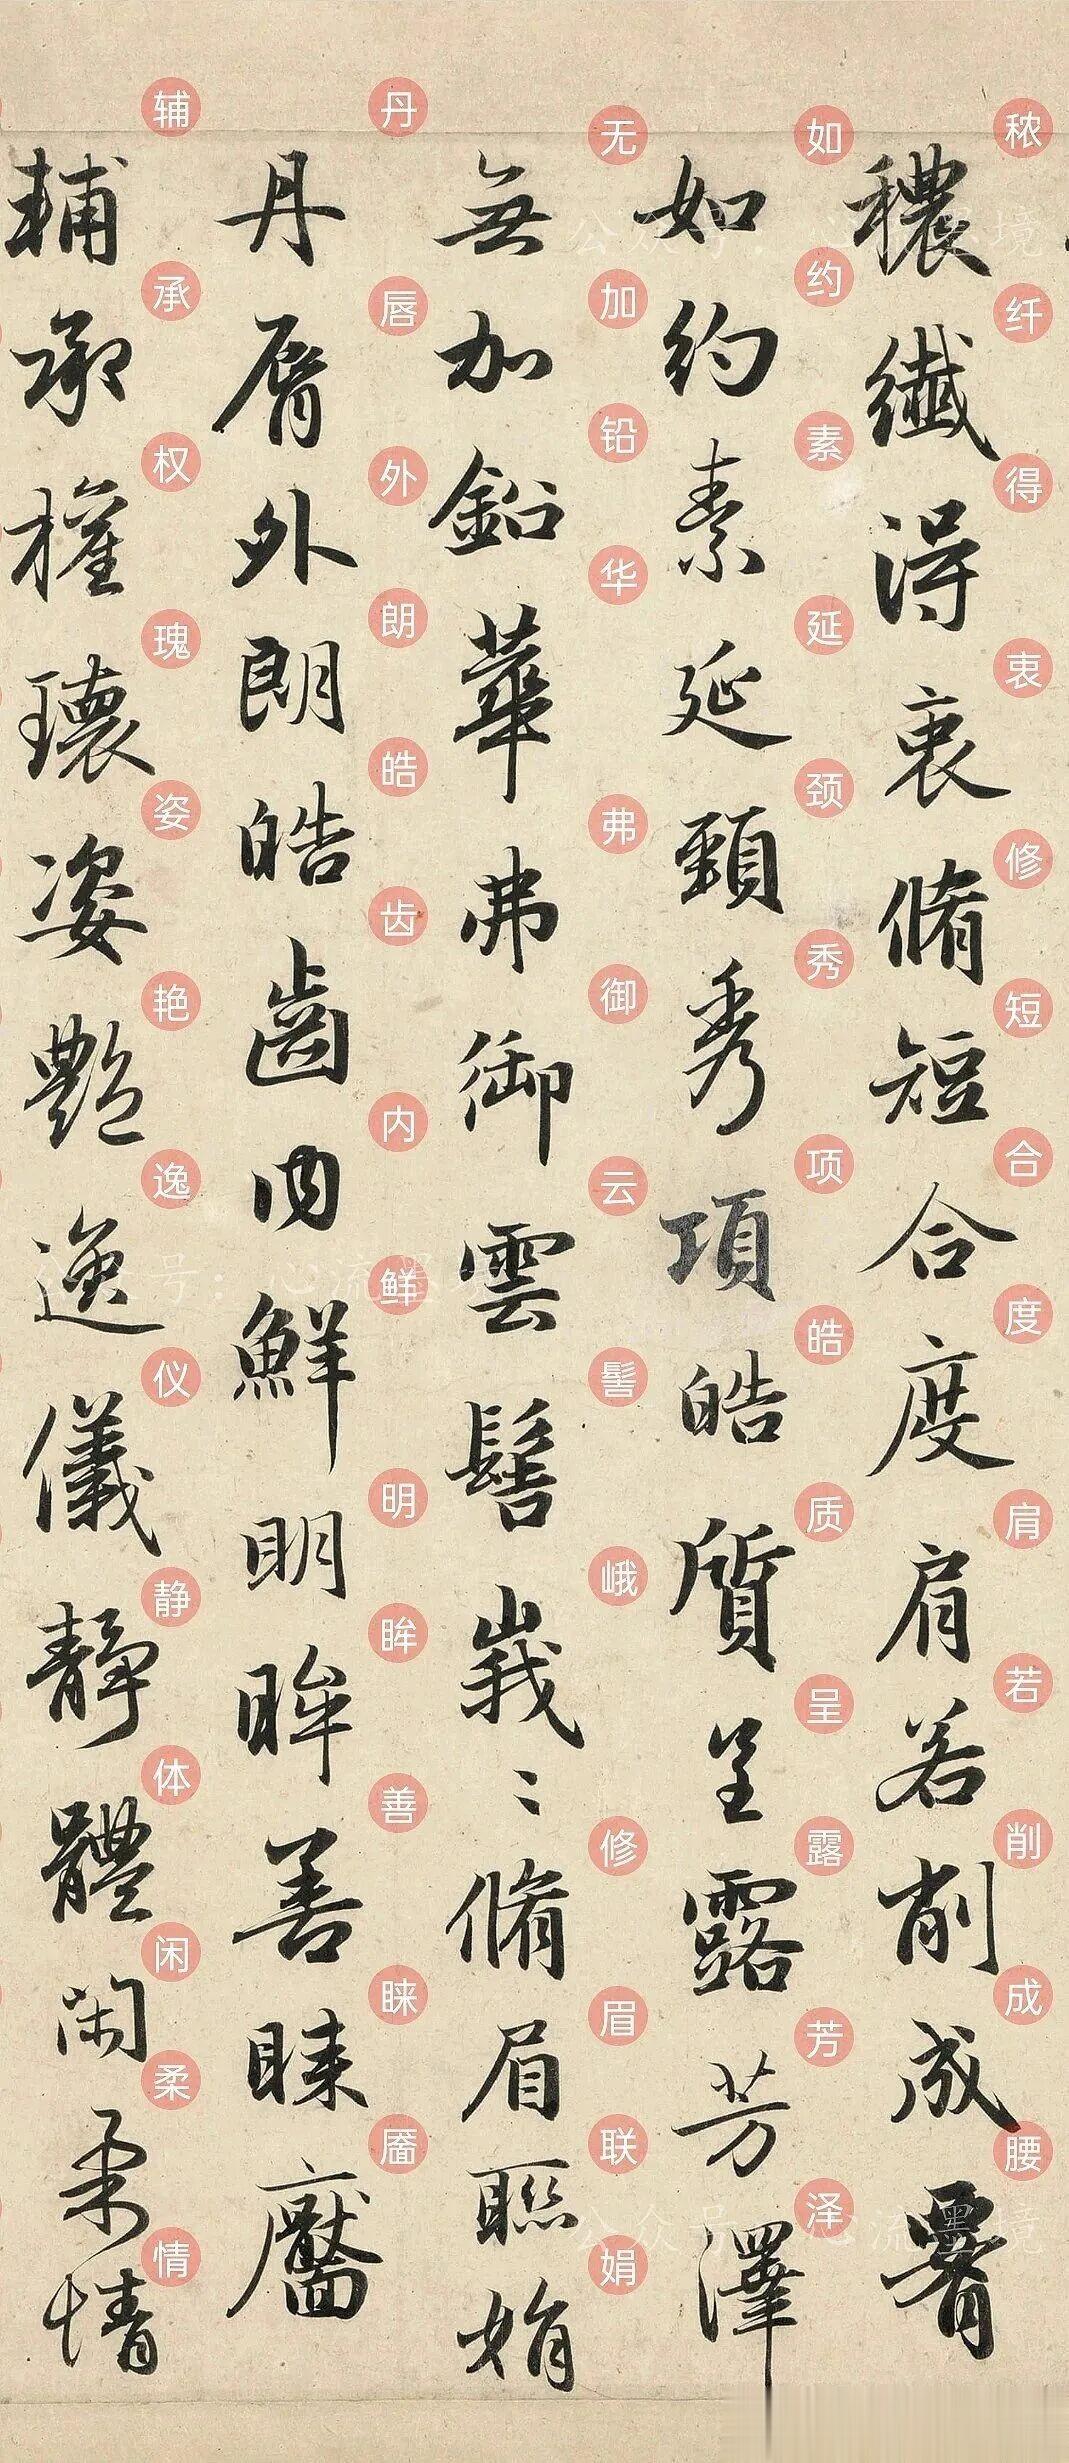 穠纖得衷脩短合度肩若削成腰
如約素延頸秀項皓質呈露芳澤
無加鉛華弗御雲髻峩〻脩眉聯娟
丹脣外朗皓齒内鮮明眸善睞靨
輔承權瓌姿艷逸儀靜體閑柔情
秾纤得衷修短合度肩若削成腰
如约素延颈秀项皓质呈露芳泽
无加铅华弗御云髻峨修眉联娟
丹唇外朗皓齿内鲜明眸善睐靥
辅承权瑰姿艳逸仪静体闲柔情
公众号：心流墨境
公众号：心流墨境
公众号：心流墨境